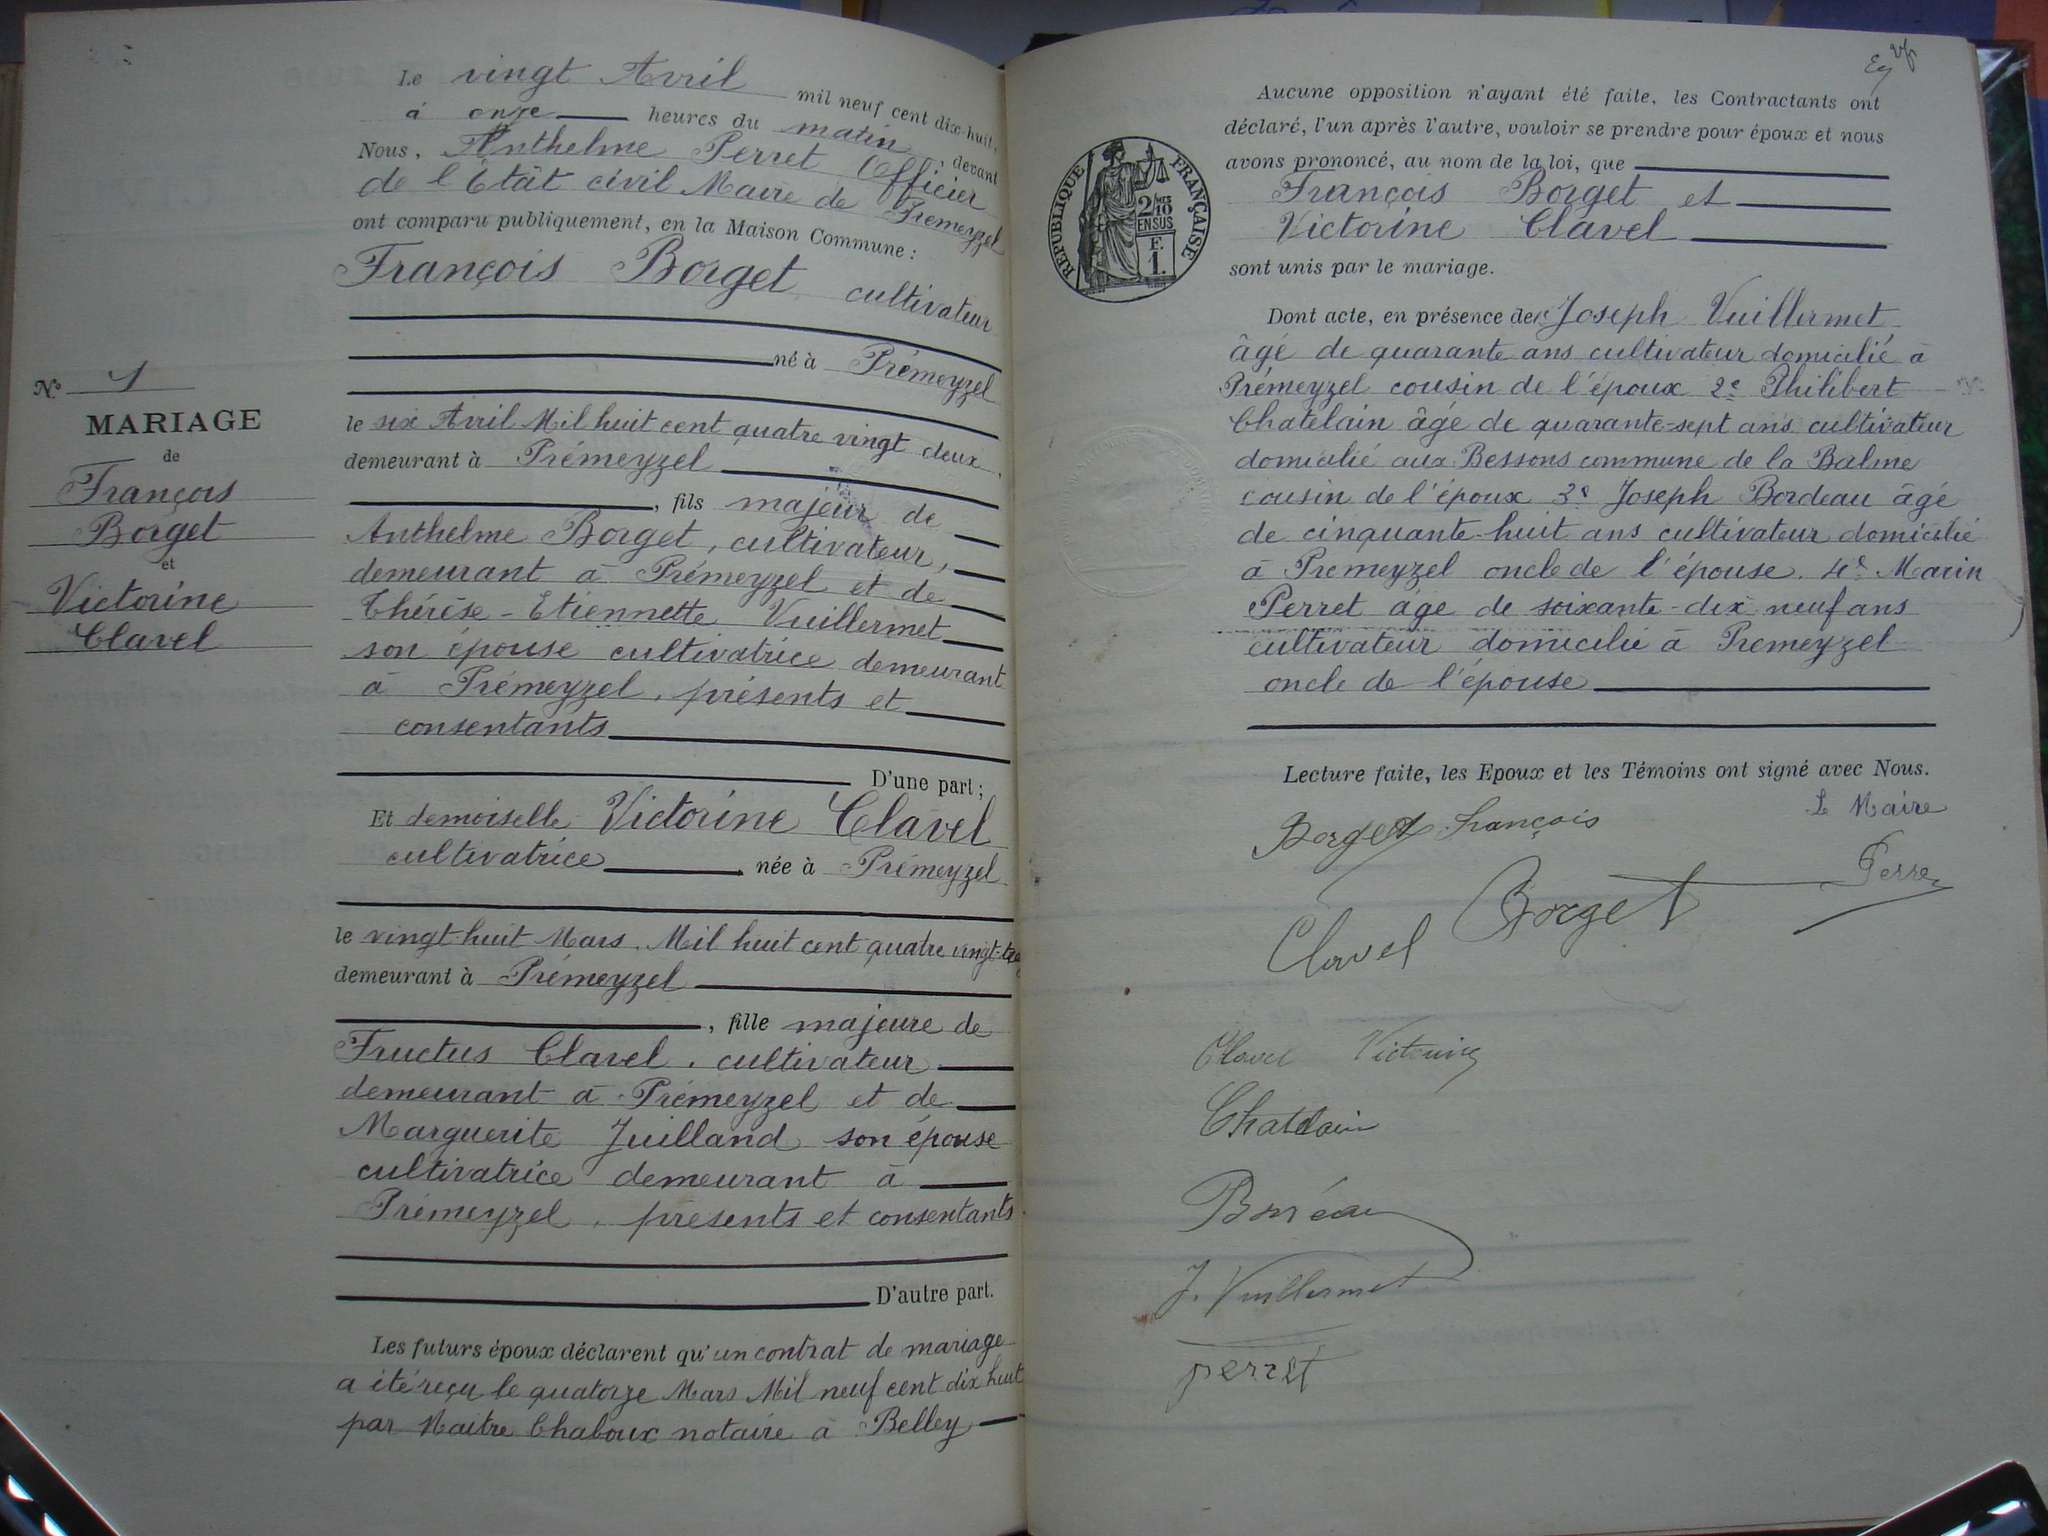 Le vingt Avril mil neuf cent dix-huit,
à onze heures du matin, devant
Nous, Anthelme Perret Officier
de l'État civil Maire de Premeyzel
ont comparu publiquement, en la Maison Commune :
François Borget cultivateur
né à Prémeyzel
le six Avril Mil huit cent quatre vingt deux,
demeurant à Prémeyzel
, fils majeur de
Anthelme Borget, cultivateur,
demeurant à Prémeyzel et de
Thérèse-Etiennette Vuillermet
son épouse cultivatrice demeurant
à Prémeyzel, présents et
consentants
D'une part ;
Et demoiselle Victorine Clavel
cultivatrice, née à Prémeyzel
le vingt-huit Mars Mil huit cent quatre vingt-
demeurant à Prémeyzel
, fille majeure de
Fructus Clavel, cultivateur
demeurant à Prémeyzel et de
Marguerite Juilland son épouse
cultivatrice demeurant à
Prémeyzel, présents et consentants
D'autre part.
Les futurs époux déclarent qu'un contrat de mariage
a été reçu le quatorze Mars Mil neuf cent dix huit
par Maitre Chaboux notaire à Belley
No 1
MARIAGE
de
François
Borget
et
Victorine
Clavel
Aucune opposition n'ayant été faite, les Contractants ont
déclaré, l'un après l'autre, vouloir se prendre pour époux et nous
avons prononcé, au nom de la loi, que
François Borget et
Victorine Clavel
sont unis par le mariage.
RÉPUBLIQUE FRANÇAISE
2/10
EN SUS
F.
1.
Dont acte, en présence de Joseph Vuillermet
âgé de quarante ans cultivateur domicilié à
Prémeyzel cousin de l'époux 2e Philibert
Chatelain âgé de quarante-sept ans cultivateur
domicilié aux Bessons commune de la Balme
cousin de l'époux 3e Joseph Bordeau âgé
de cinquante-huit ans cultivateur domicilié
à Premeyzel oncle de l'épouse. 4e Marin
Perret âgé de soixante-dix neuf ans
cultivateur domicilié à Premeyzel
oncle de l'épouse
Lecture faite, les Epoux et les Témoins ont signé avec Nous.
Le Maire
Borget François
Perret
Borget
Clavel
Clavel Victorine
Chatelain
J. Vuillermet
perret